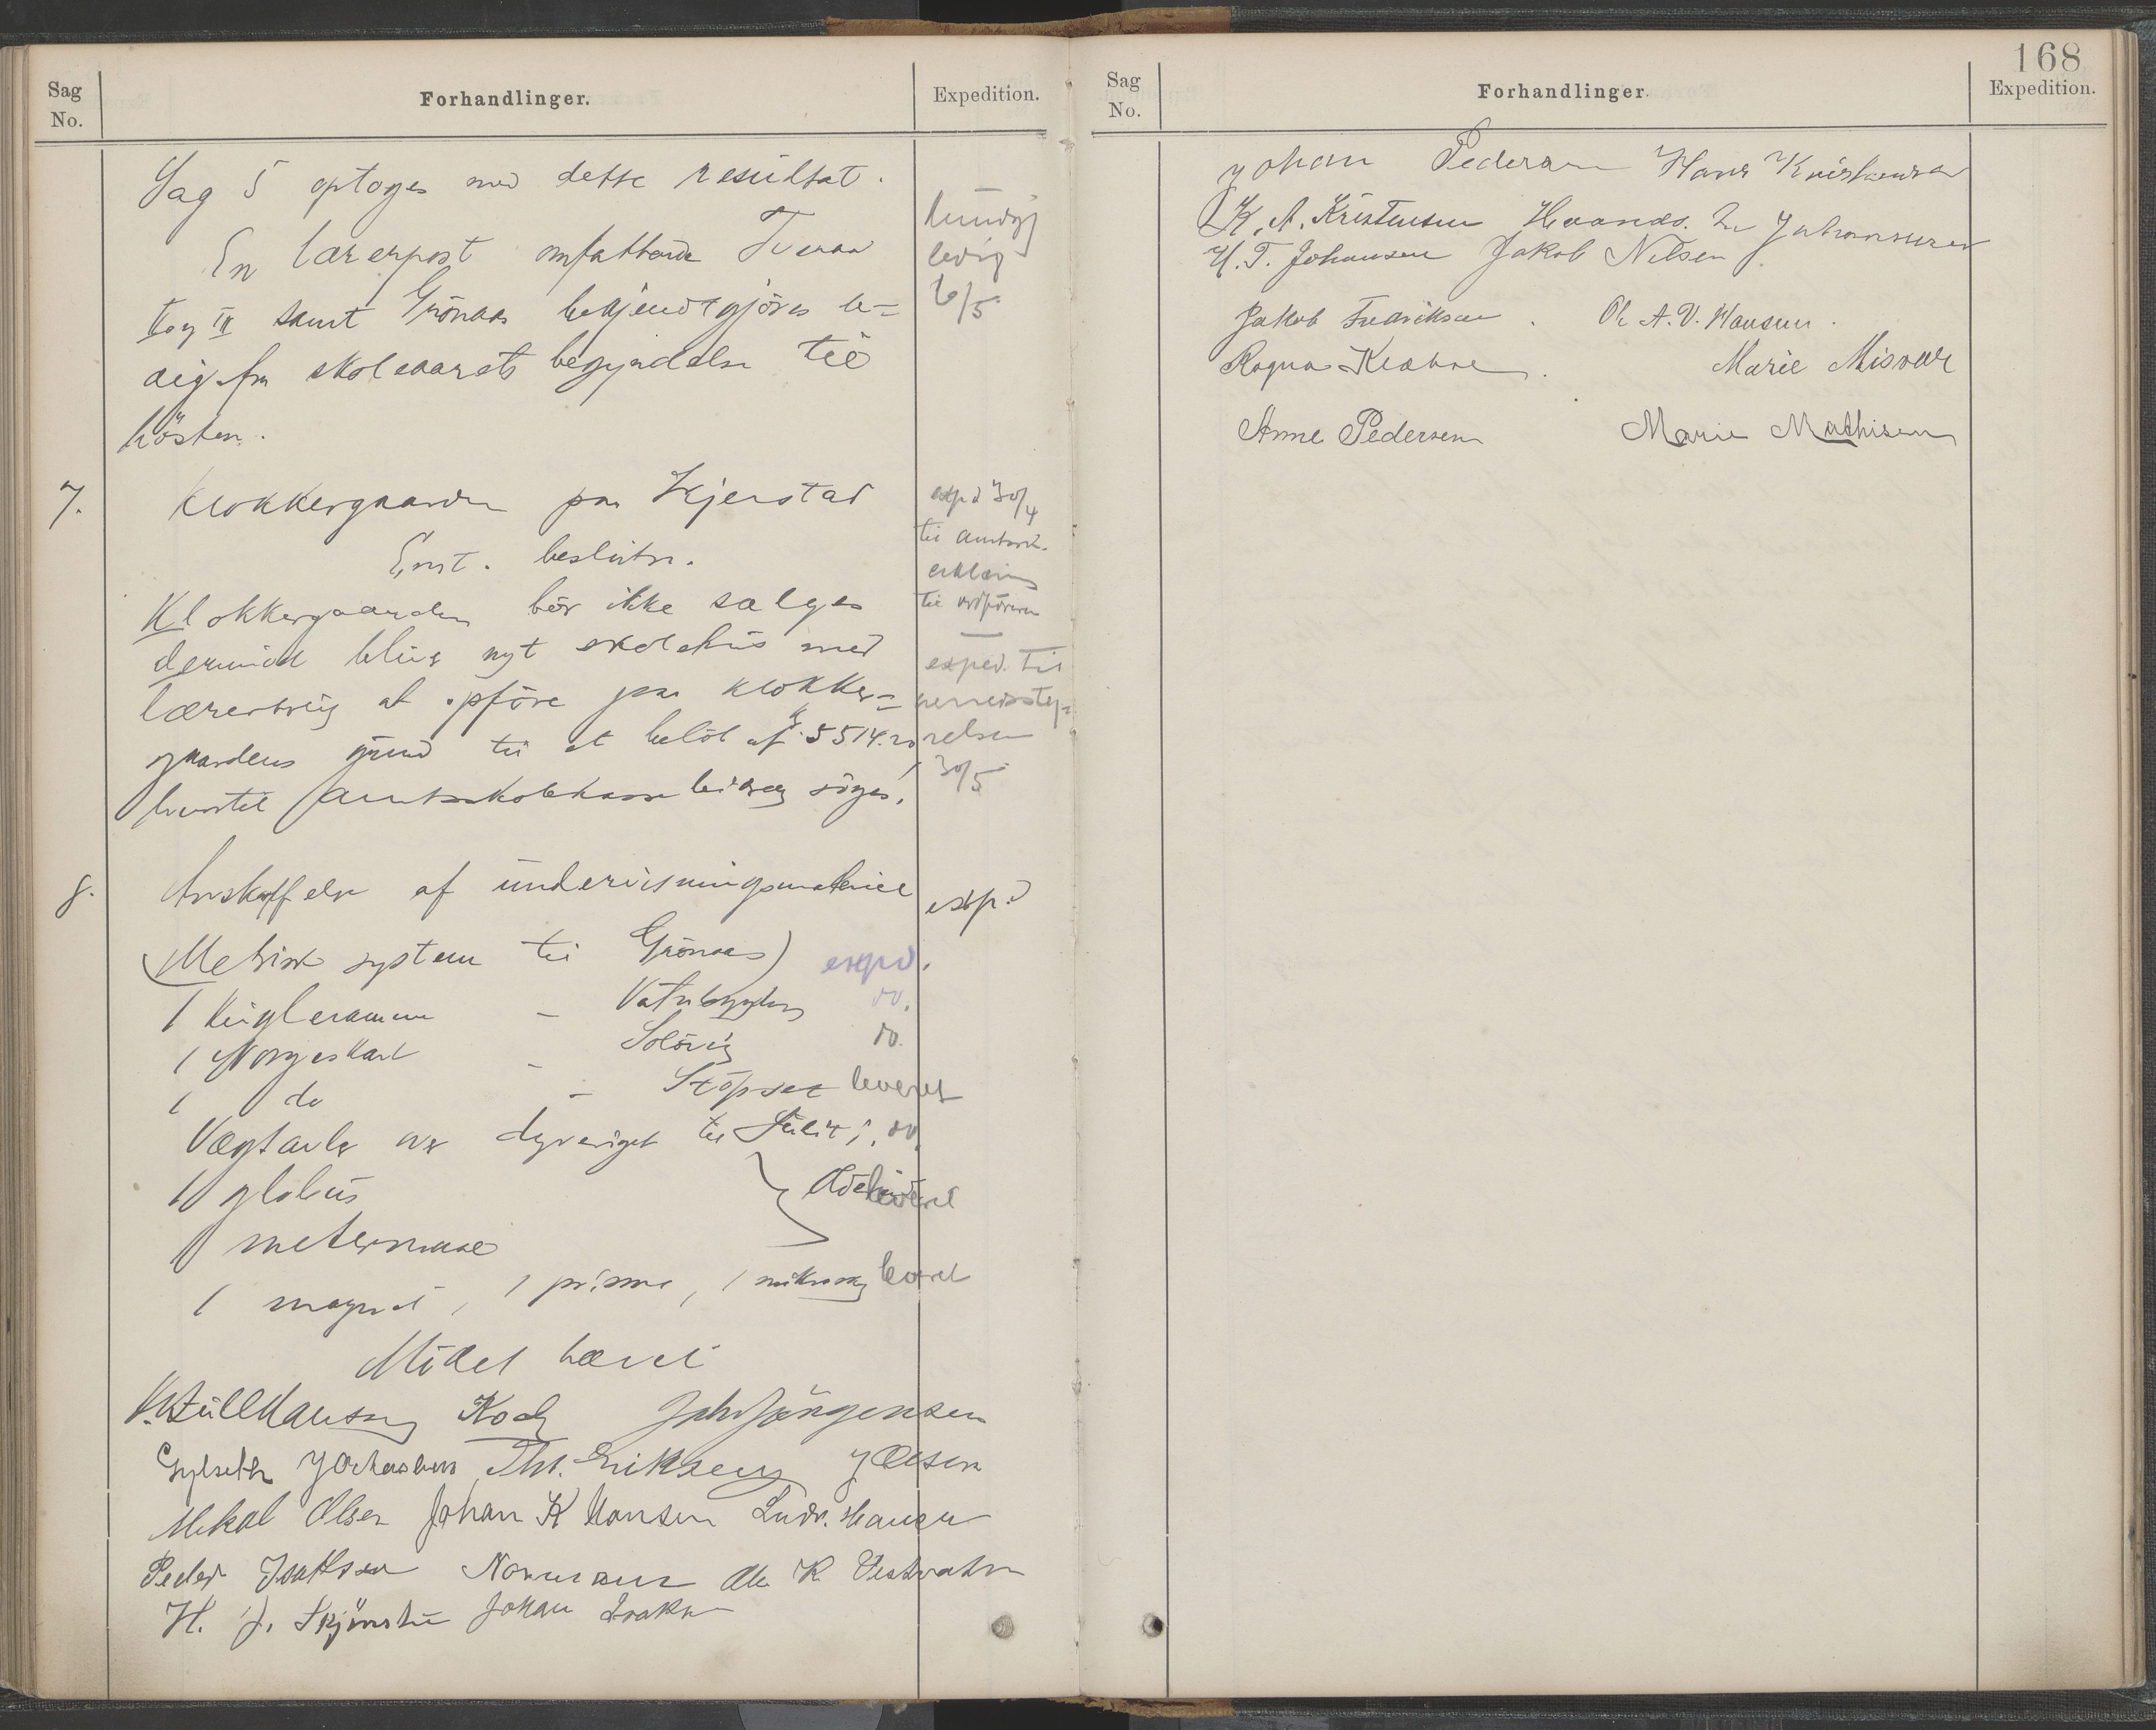 Sag
No.
Forhandlinger.
Expedition.
Sag 5 optoges med dette resultat.
En lærerpost omfattende Tveraa
log III samt Grönaas bekjendtgjöres le-
dig fra skoleaarets begyndelse til
hösten.
kundgj
ledig
6/5
7.
Klokkergaarden paa Kjerstad
Enst. beslutn.
Klokkergaarden bör ikke sælges
derimod blir nyt skolehus med
lærerbolig at opföre paa klokker-
gaardens grund til et belöb af kr 5514.20,
hvortil amtsskolekasse bidrag söges.
expd 30/4
til amtssk.
erklæring
til ordföreren
exped. til
herredssty-
relsen
30/5
8.
Anskaffelse af undervisningsmateriel
expd
(Metrisk system til Grönaas) expd.
1 Kugleramme - Vatnbygden do.
1 Norgeskart - Solövig do.
1 do - Stöpset leveret
Vægtavle over dyreriget til do.
1 globus
1 metermaal
leveret
1 magnet, 1 prisme, 1 mikroskop leveret
Mödet hævet
Koch Joh Jörgensen
Gylseth Thr. Eriksen J Olsen
Mikal Olsen Johan K Hansen Ludv. Hansen
Peder Normann Ole K Vestvatn
H. J. Johan Isaksen
168
Sag
No.
Forhandlinger.
Expedition.
Johan Pedersen Hans Kristensen
K. A. Kristensen Johansen
H. T. Johansen Jakob Nilsen
Jakob Fredriksen. Ole A. V. Hansen.
Ragna Marie Misvær
Anne Pedersen Marie Mathisen